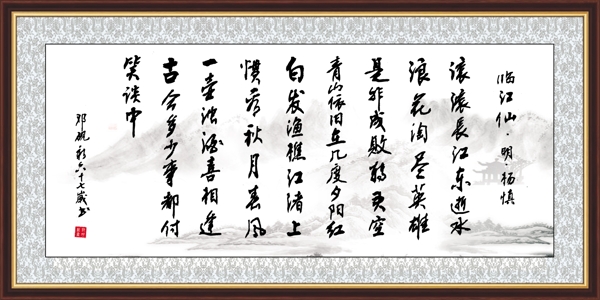 临江仙·明·杨慎
滚滚长江东逝水
浪花淘尽英雄
是非成败转头空
青山依旧在几度夕阳红
白发渔樵江渚上
惯看秋月春风
一壶浊酒喜相逢
古今多少事都付
笑谈中
六十七岁书